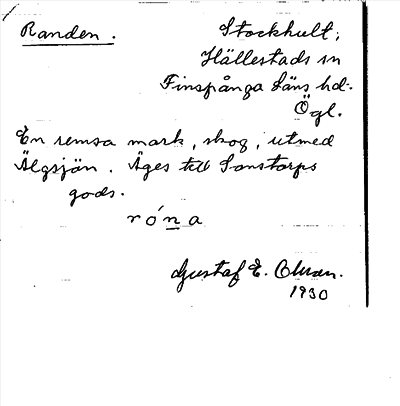 Randen.
Stockhult;
Hällestads sn
Finspånga Läns hd.
Ögl.
En remsa mark, skog, utmed
Älgsjön. Äges till Sonstorps
gods.
r ó n a
Gustaf E. Ohman.
1930